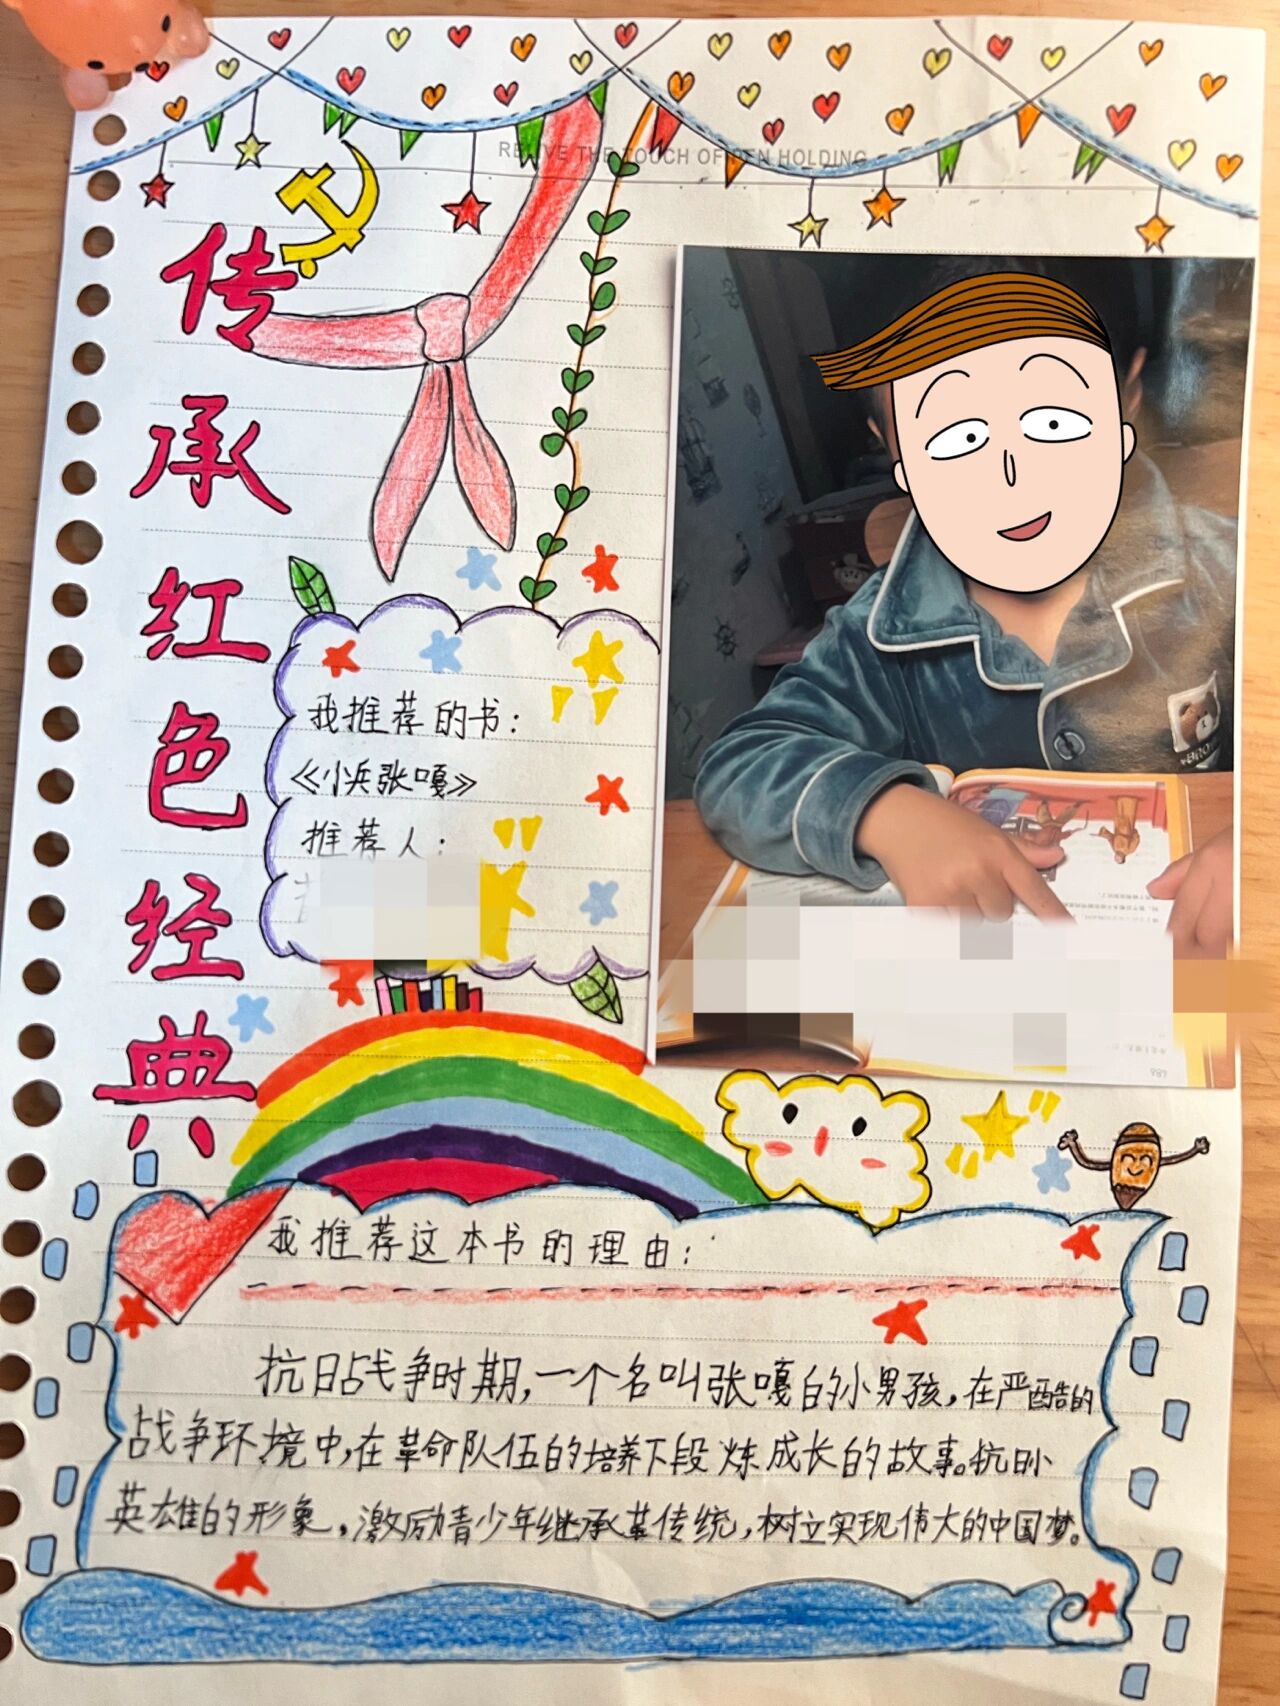 RELIVE THE TOUCH OF PEN HOLDING
传承红色经典
我推荐的书：
《小兵张嘎》
推荐人：
我推荐这本书的理由：
抗日战争时期，一个名叫张嘎的小男孩，在严酷的
战争环境中，在革命队伍的培养下段炼成长的故事。抗日小
英雄的形象，激励青少年继承革传统，树立实现伟大的中国梦。